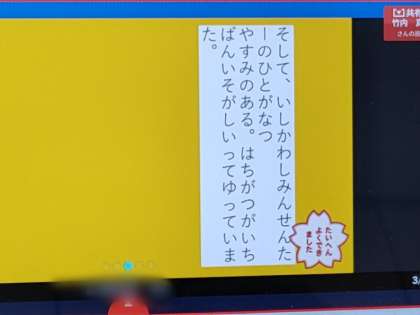 そして、いしかわしみんせんた
ーのひとがなつ
やすみのある。はちがつがいち
ばんいそがしいってゆっていま
た。
たいへん
よくでき
ました
竹内
さんの
3